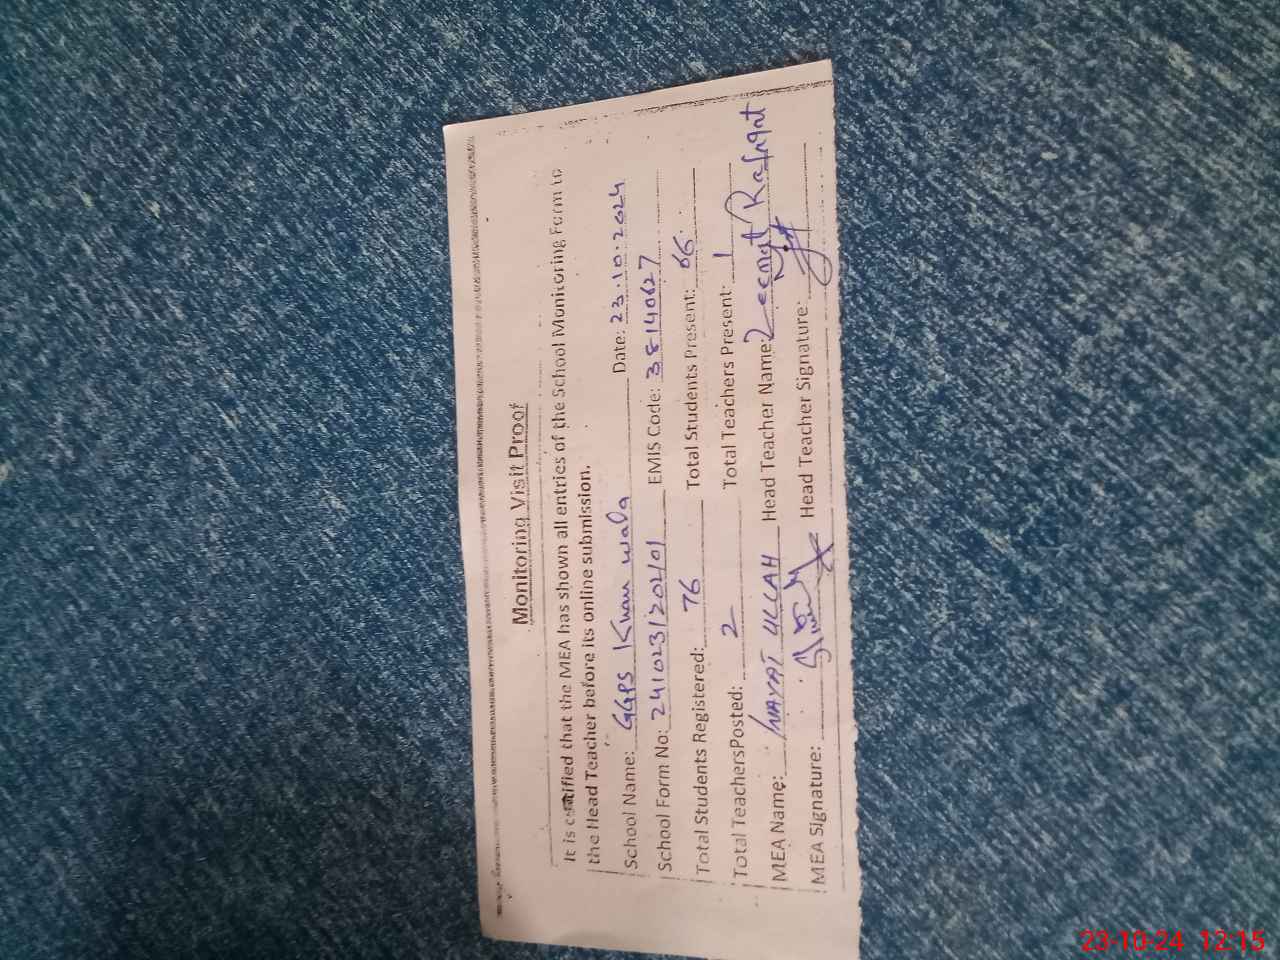 Monitoring Visit Proof
It is certified that the MEA has shown all entries of the School Monitoring Form to
the Head Teacher before its online submission.
School Name: GGPS Khan wala Date: 23.10.2024
School Form No: 241023/20201 EMIS Code: 38140627
Total Students Registered: 76 Total Students Present: 66
Total TeachersPosted: 2 Total Teachers Present: 1
MEA Name: INAYAT ULLAH Head Teacher Name: Rafaqat
MEA Signature: Head Teacher Signature:
23-10-24 12:15